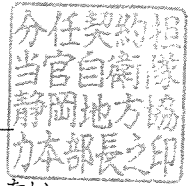 分任契約担
当官自衛隊
静岡地方協
力本部長之印